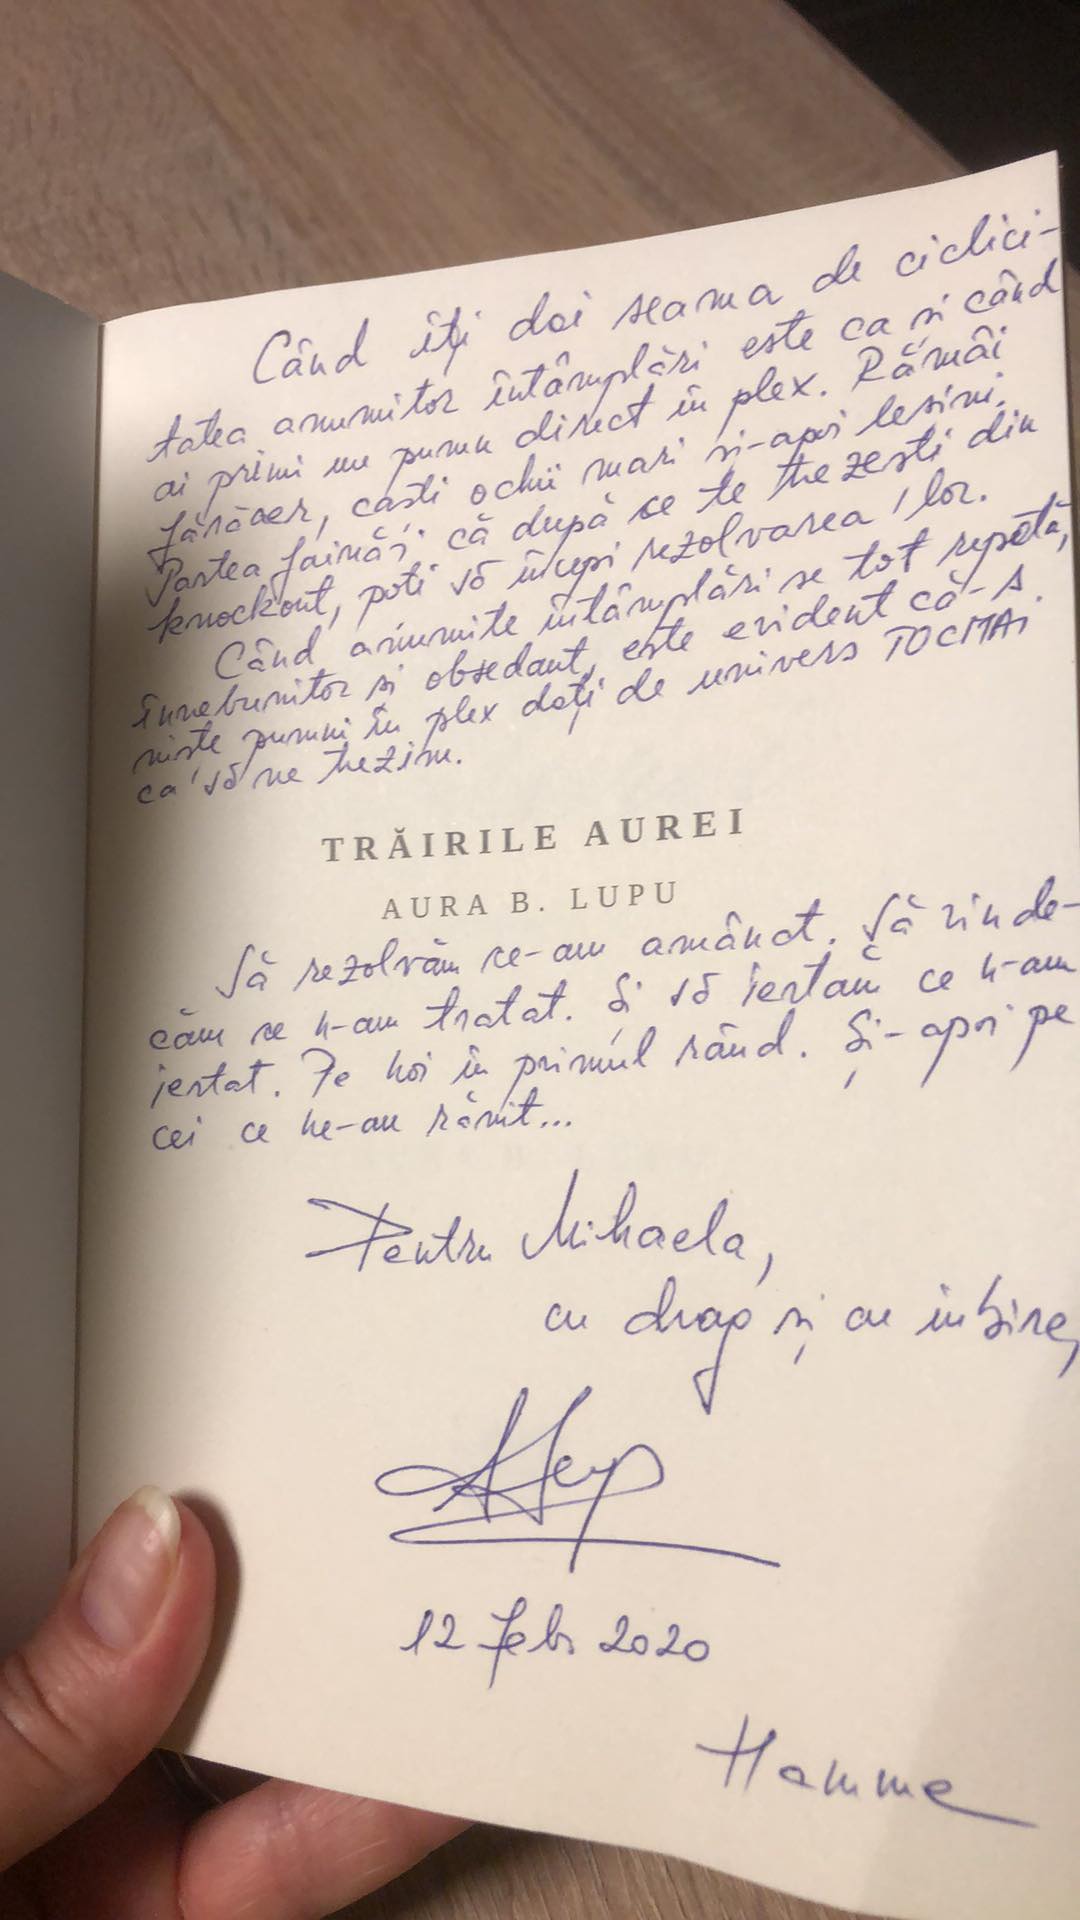 Când îți dai seama de ciclici-
tatea anumitor întâmplări este ca și când
ai primi un pumn direct în plex. Rămâi
fără aer, caști ochii mari și-apoi leșini.
Partea faină? că după ce te trezești din
knockout, poți să începi rezolvarea lor.
Când anumite întâmplări se tot repetă,
înnebunitor și obsedant, este evident că-s
niște pumni în plex dați de univers TOCMAI
ca să ne trezim.
TRĂIRILE AUREI
AURA B. LUPU
Să rezolvăm ce-am amânat. Să vinde-
căm ce n-am tratat. Și să iertăm ce n-am
iertat. Pe noi în primul rând. Și-apoi pe
cei ce ne-au rănit...
Pentru Mihaela,
cu drag și cu iubire,
12 Feb 2020
Hamme